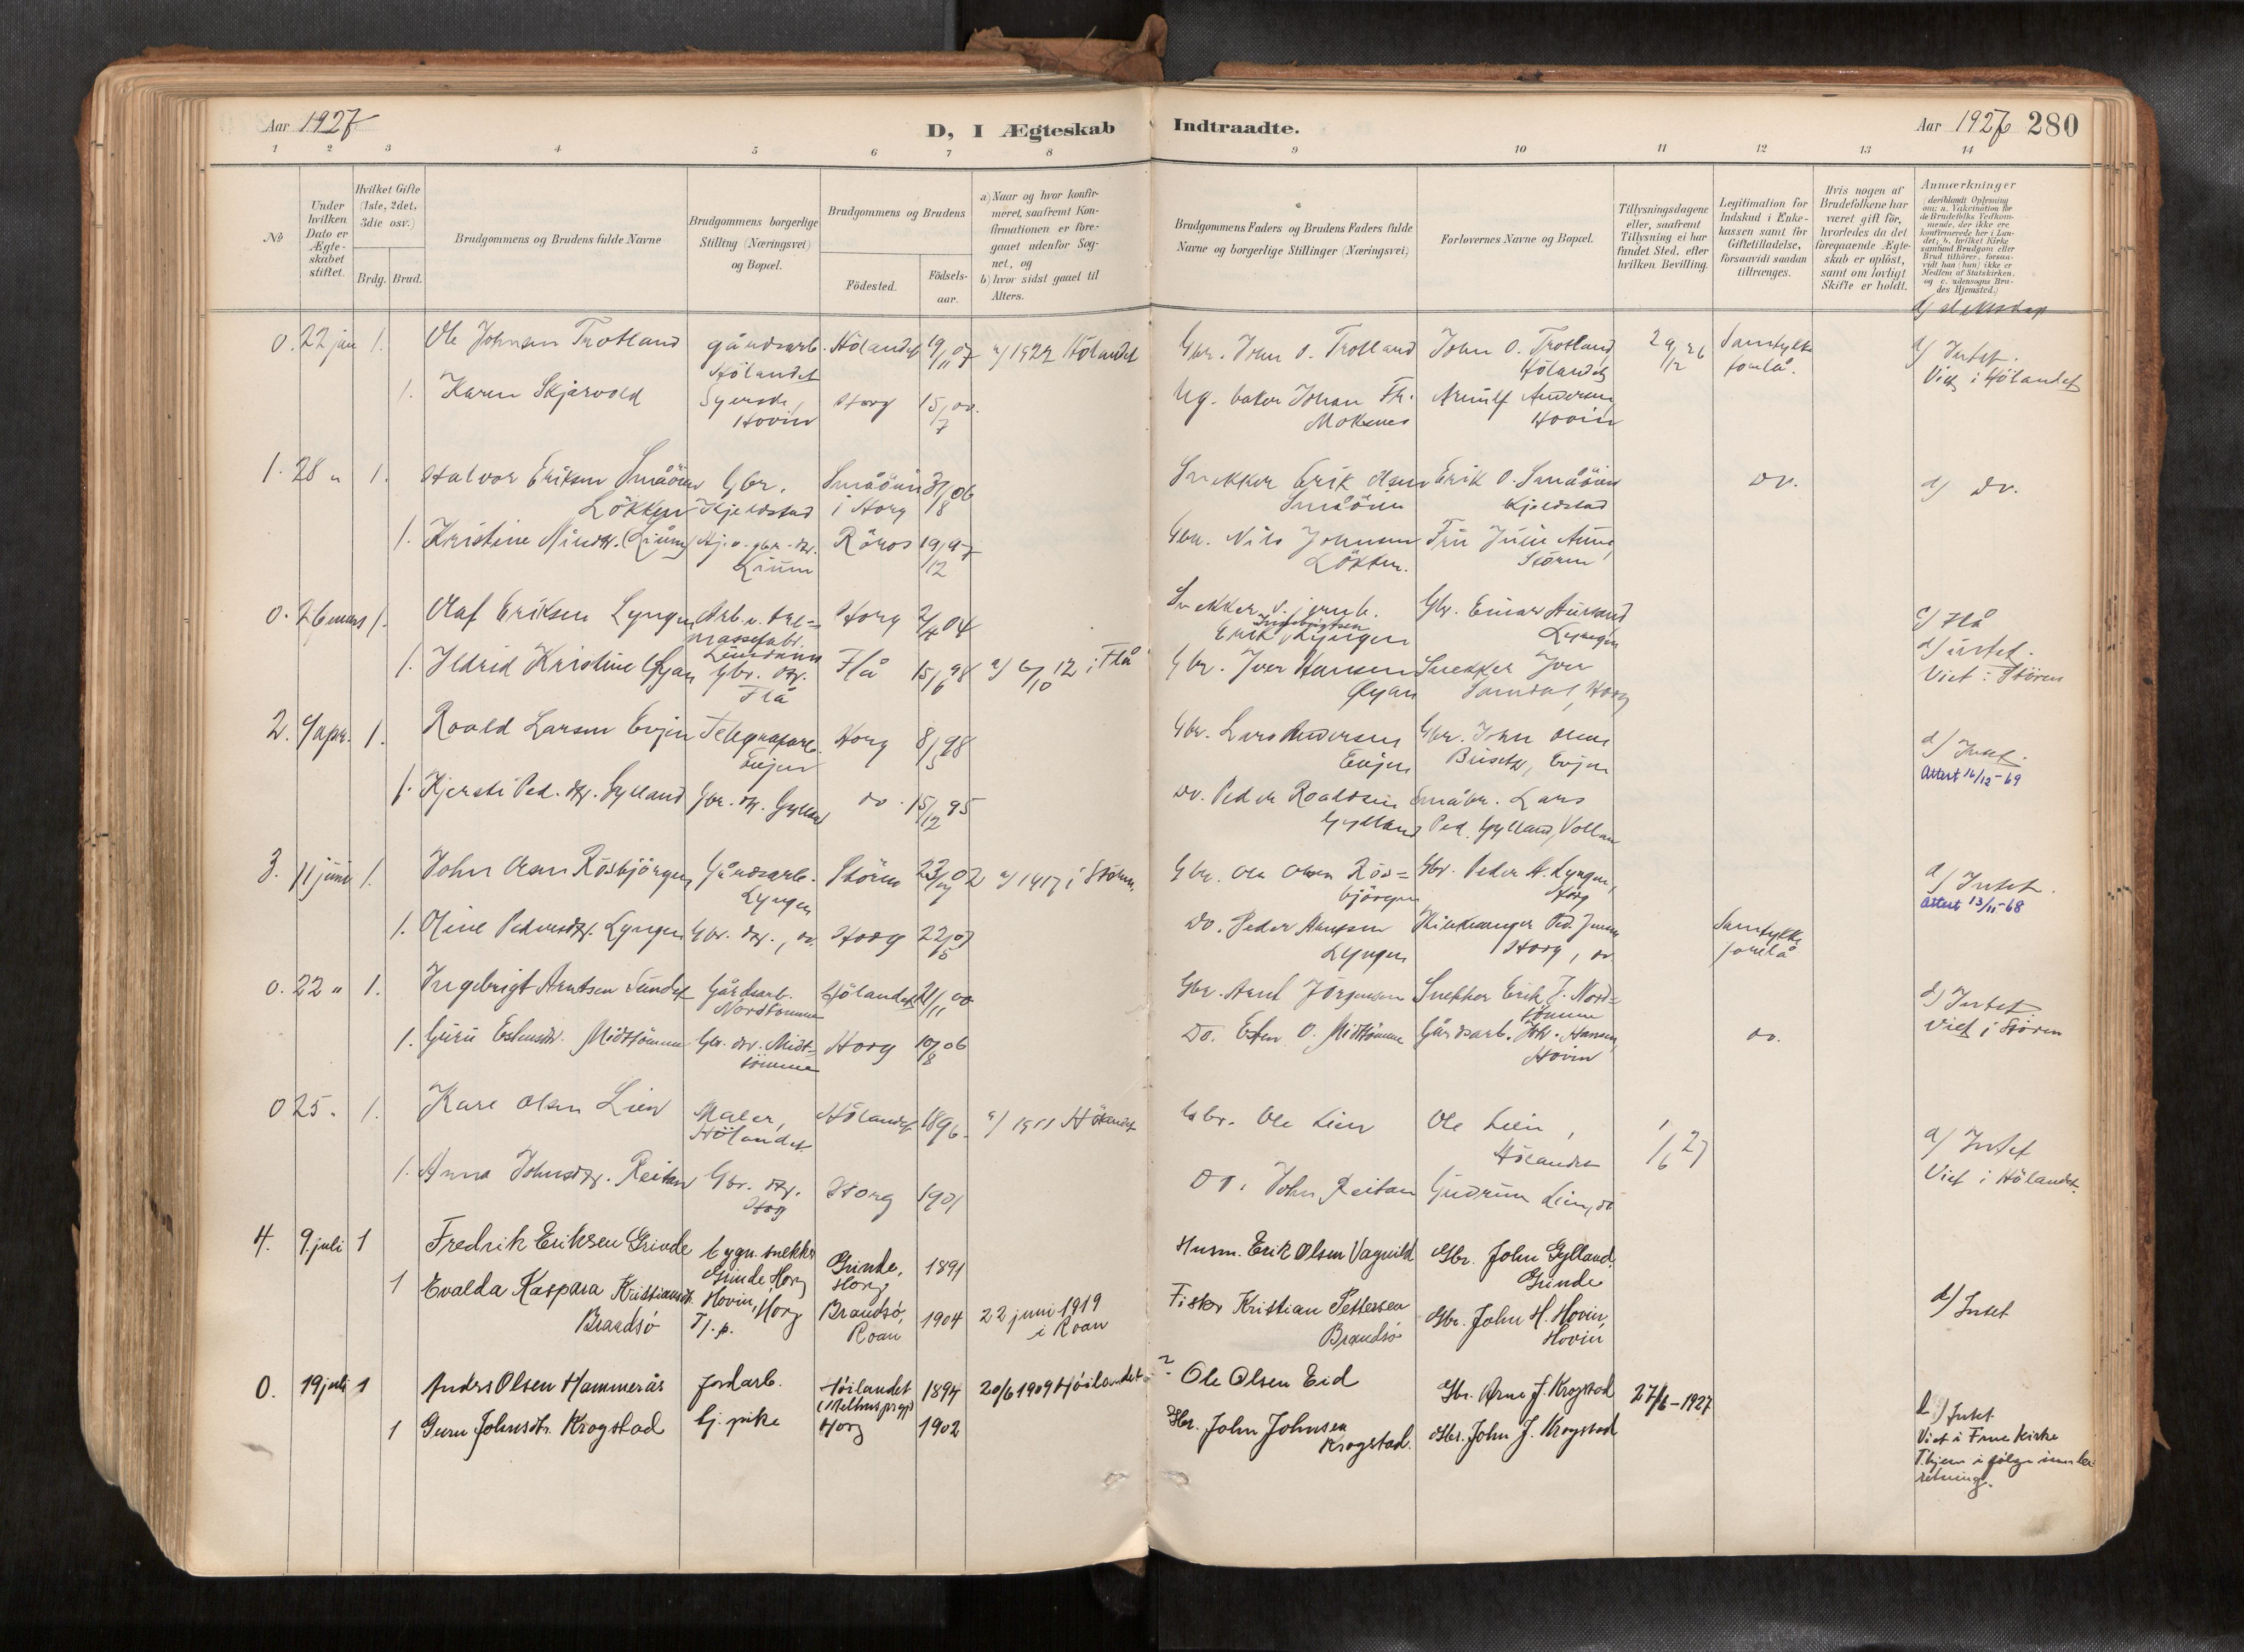 Aar 1927
D, I Ægteskab Indtraadte.
Aar 1927 280
1 2 3 4 5 6 7 8 9 10 11 12 13 14
No
Under hvilken Dato er Ægteskabet stiftet.
Hvilket Gifte (1ste, 2det, 3die osv.)
Brdg. Brud.
Brudgommens og Brudens fulde Navne
Brudgommens borgerlige Stilling (Næringsvei) og Bopæl.
Brudgommens og Brudens
Fødested.
Fødselsaar.
a) Naar og hvor konfirmeret, saafremt Konfirmationen er foregaaet udenfor Sognet, og
b) hvor sidst gaaet til Alters.
Brudgommens Faders og Brudens Faders fulde Navne og borgerlige Stillinger (Næringsvei)
Forlovernes Navne og Bopæl.
Tillysningsdagene eller, saafremt Tillysning ei har fundet Sted, efter hvilken Bevilling.
Legitimation for Indskud i Enkekassen samt for Giftetilladelse, forsaavidt saadan tiltrænges.
Hvis nogen af Brudefolkene har været gift før, hvorledes da det foregaaende Ægteskab er opløst, samt om lovligt Skifte er holdt.
Anmærkninger
(deriblandt Oplysning om: a. Vakcination for de Brudefolks Vedkommende, der ikke ere konfirmerede her i Landet; b. hvilket Kirkesamfund Brudgom eller Brud tilhører, forsaavidt han (hun) ikke er Medlem af Statskirken, og c. udensogns Brudes Hjemsted.)
0. 22 jan 1. Ole Johnsen Trotland gårdsarb. Hölandet 19/11 07 a) 1922 Hölandet Gbr. John O. Trotland John O. Trotland 29/12 26 Samtykke d) Intet.
Hölandet Hölandet forelå. Viet i Hölandet
1. Karen Skjærvold Horg 15/7 00. Ug. baker Johan Fr. Arnulf Andersen
Hovin Moksnes Hovin
1. 28 " 1. Halvor Eriksen Småöien Gbr. Småöien 31/8 06 Snekker Erik Olsen Erik O. Småöien do. d) do.
Lökken Kjeldstad i Horg Småöien Kjeldstad
1. Kristine Nilsdtr. (Lium) Röros 19/12 97 Gbr. Nils Johnsen Fru Aune
Lium Lökken. Stören
0. 26 mars 1. Olaf Eriksen Lyngen Arb. v. tre- Horg 2/4 04 Snekker v. jernb. Gbr. Einar Aursand c) Flå
massefabr. Ingebrigtsen d) intet.
Erik Lyngen Lyngen
1. Ildrid Kristine Öyan Gbr. dtr. Flå 15/6 98 a) 6/10 12 i Flå Gbr. Iver Hansen Snekker Iver Viet i Stören
Flå Öyan Samdal, Horg
2. 9 apr. 1. Roald Larsen Evjen Telegrafarb. Horg 8/5 98 Gbr. Lars Andersen Gbr. John Olsen d) Intet.
Evjen Evjen Buset, Evjen Attest 16/12-69
1. Kjersti Ped. dtr. Gylland Gbr. dtr. Gylland do. 15/12 95 do. Peder Roaldsen Småbr. Lars
Gylland Ped. Gylland, Vollan
3. 11 juni 1. John Olsen Rösbjörgen Gårdsarb. Stören 23/7 02 a) 1917 i Stören. Gbr. Ole Olsen Rös= Gbr. Peder A. Lyngen, d) Intet.
Lyngen björgen Horg Attest 13/11-68
1. Oline Pedersdtr. Lyngen Gbr. dtr., do. Horg 22/5 07 do. Peder Arntsen Ped. Jensen Samtykke
Lyngen Horg, do. forelå
0. 22 " 1. Ingebrigt Arntsen Sundet Gårdsarb. Hölandet 21/11 00 Gbr. Arnt Jörgensen Snekker Erik J. Nord= d) Intet.
Nordtömme tömme Viet i Stören
1. Guru Estensdtr. Midttömme Gbr. dtr. Midt= Horg 10/8 06 Do. Esten O. Midttömme Gårdsarb. Joh. Hansen, do.
tömme Hovin
0 25 " 1. Kare Olsen Lien Maler, Hölandet 1896. a) 1911 Hölandet Gbr. Ole Lien Ole Lien, 1/6 27 d) Intet
Hölandet. Hölandet Viet i Hölandet.
1. Anna Johnsdtr. Reitan Gbr. dtr. Horg 1901 Do. John Reitan Gudrun Lien, do
Horg
4. 9. juli 1 Fredrik Eriksen Grinde bygn. snekker Grinde, 1891 Husm. Erik Olsen Vagnild Gbr. John Gylland,
Grinde Horg Horg Grinde
1 Evalda Kaspara Kristiansdt. Hovin, Horg Brandsö, 1904 22 juni 1919 Fisker Kristian Pettersen Gbr. John H. Hovin, d) Intet
Brandsö Tj. p. Roan i Roan Brandsö Hovin
0. 19 juli 1 Anders Olsen Hammerås Jordarb. Höilandet 1894 20/6 1909 Höilandet ? Ole Olsen Eid Gbr. Arne J. Krogstad 27/6-1927 d) Intet
(Melhus prgj) Viet i Frue Kirke
1 Guru Johnsdtr. Krogstad tj. pike Horg 1902 Gbr. John Johnsen Gbr. John J. Krogstad T.hjem i følge innbe-
Krogstad. retning.